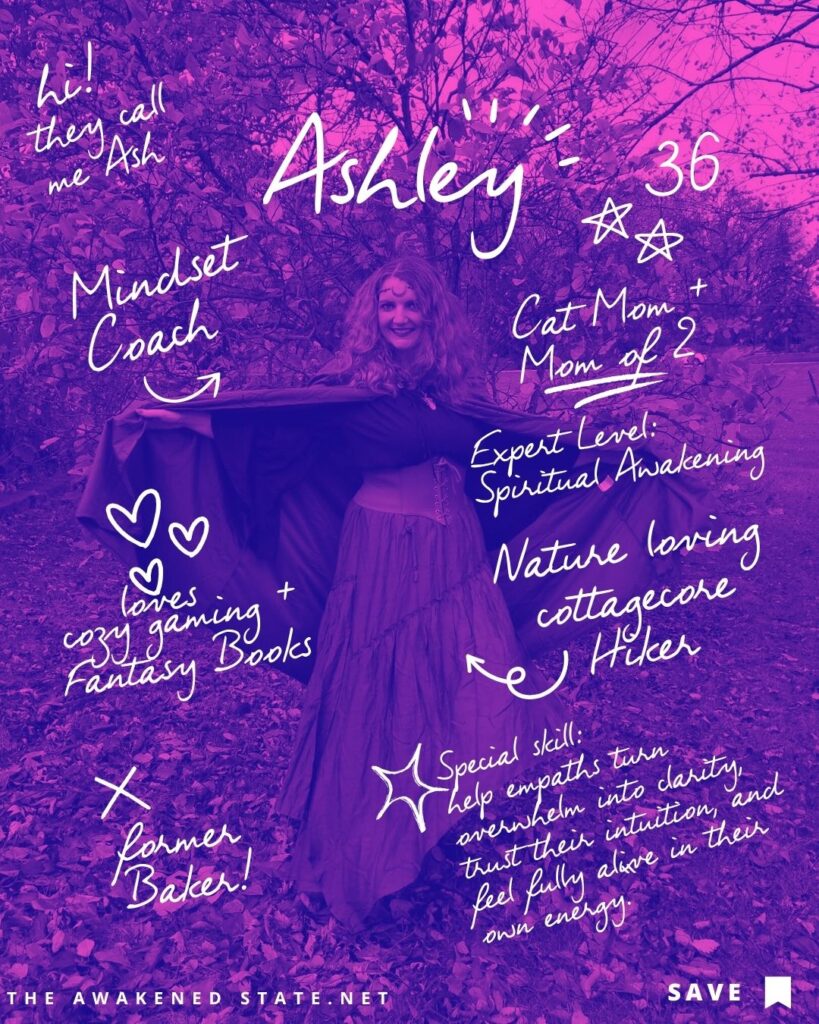 hi!
they call
me Ash
Ashley
36
Mindset
Coach
Cat Mom +
Mom of 2
Expert Level:
Spiritual Awakening
Nature loving
cottagecore
Hiker
loves
cozy gaming +
Fantasy Books
Special skill:
help empaths turn
overwhelm into clarity,
trust their intuition, and
feel fully alive in their
own energy.
former
Baker!
THE AWAKENED STATE.NET
SAVE